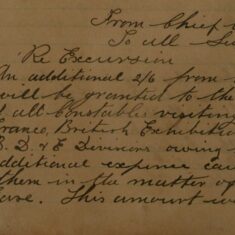 From Chief
To all
Re Excursion
An additional 2/6 from
will be granted to the
all Constables visiting
Franco, British Exhibition
D. & E Divisions owing
additional expense
them in the matter of
This amount